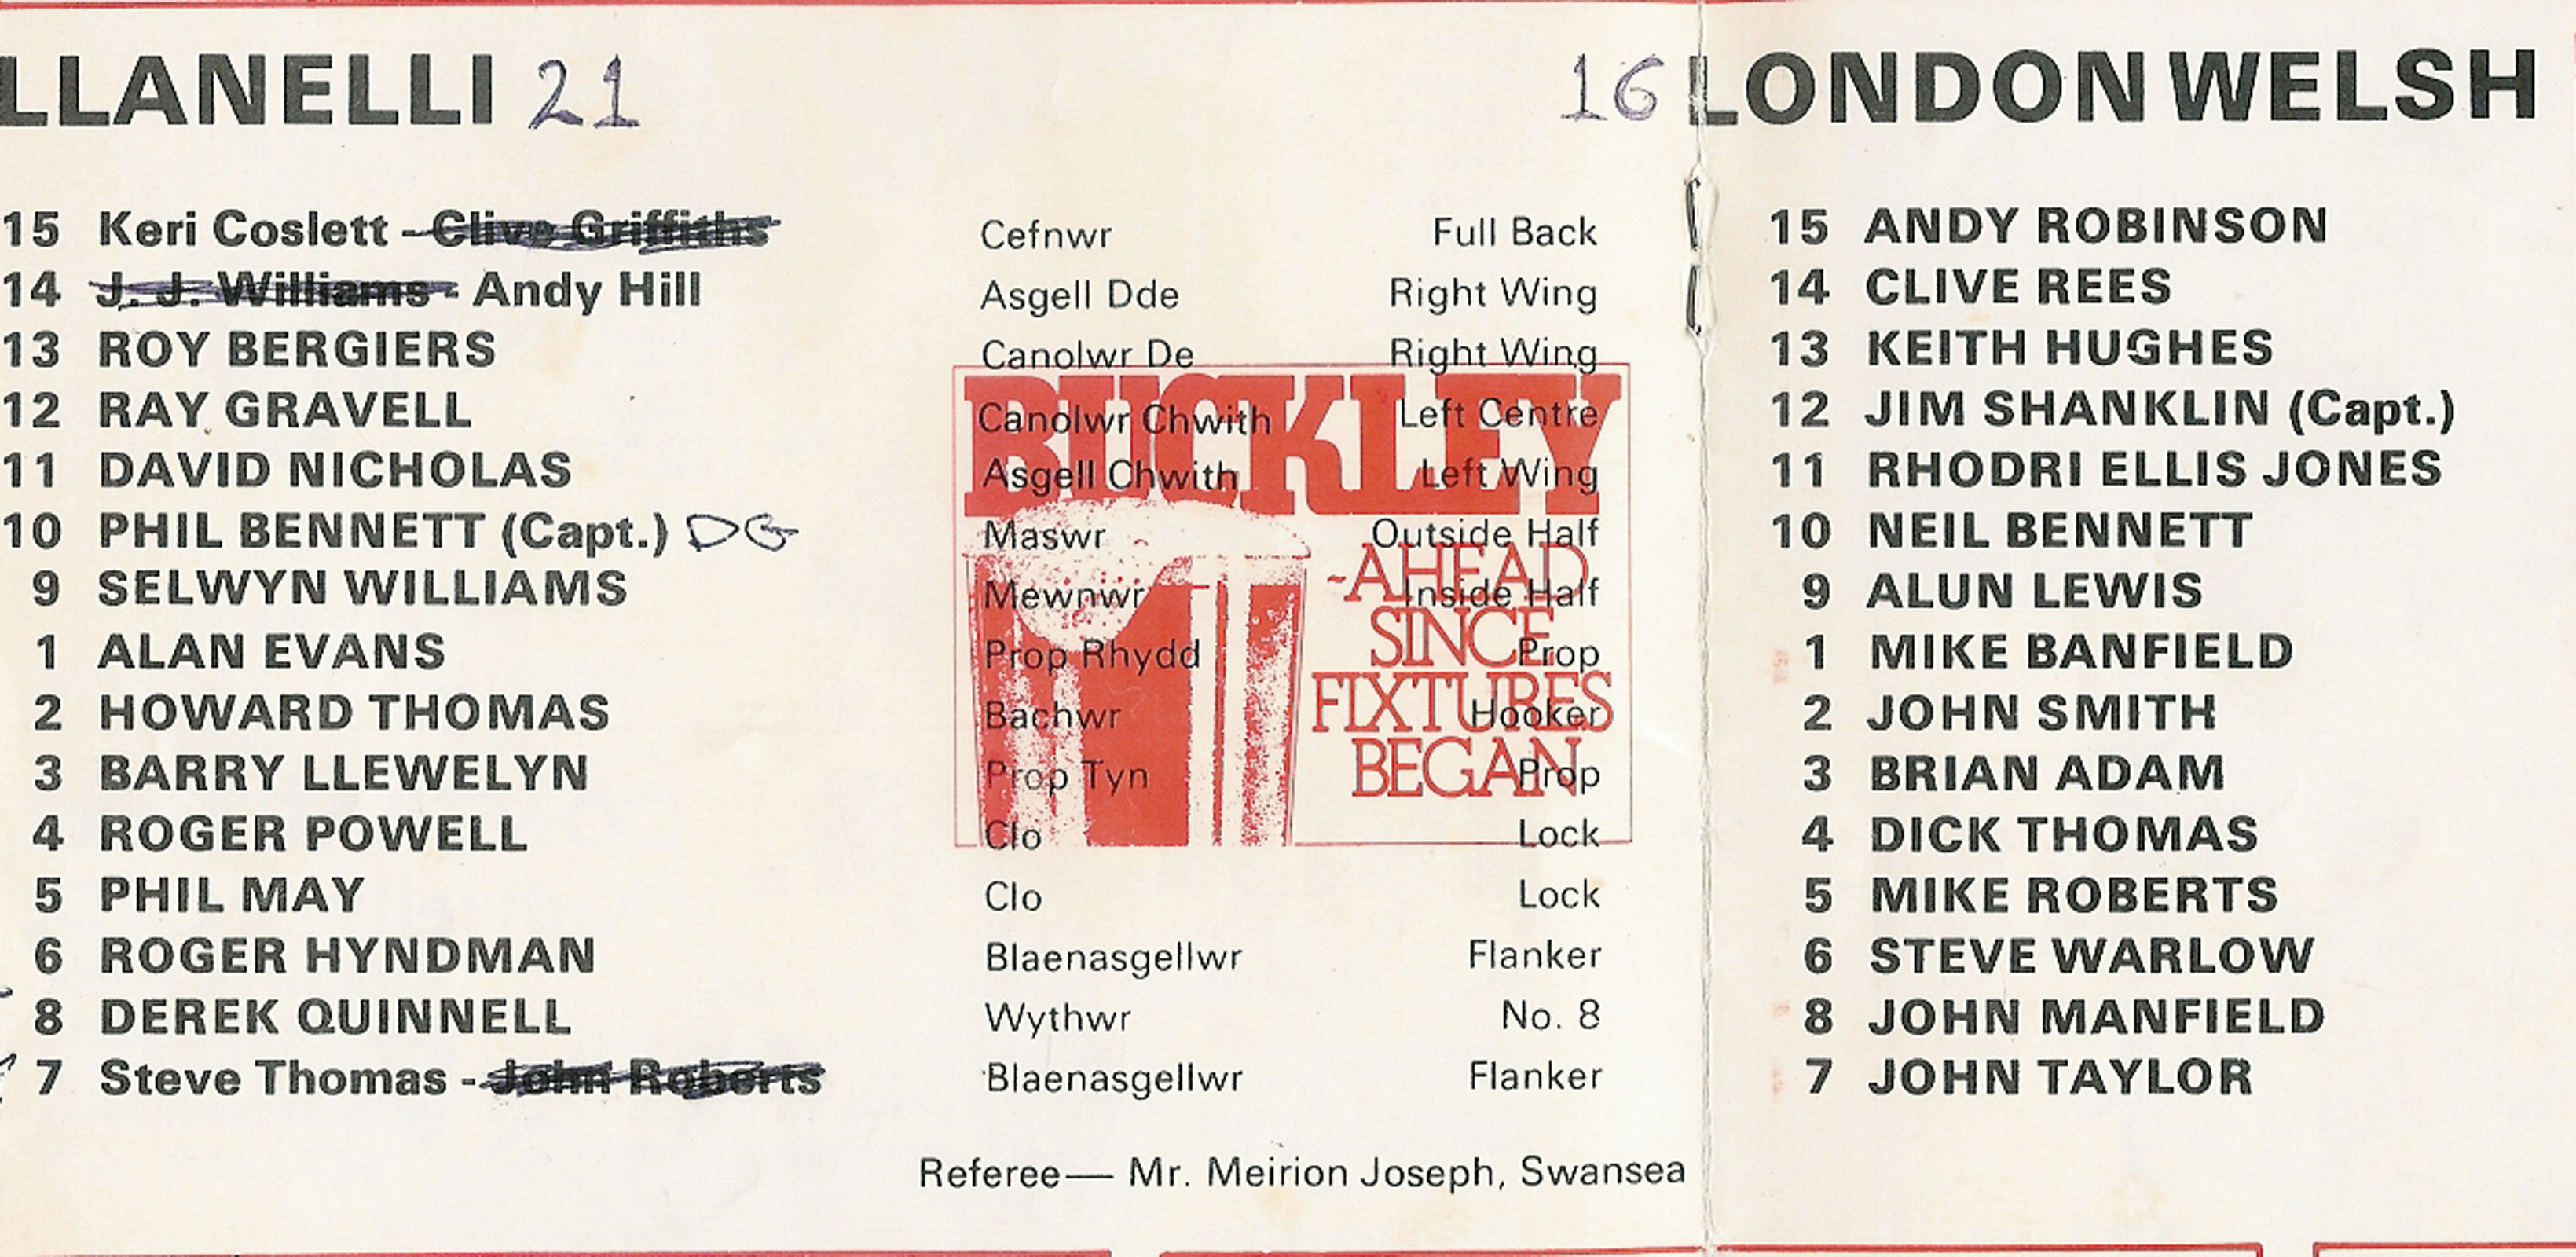 LLANELLI 21 16 LONDON WELSH
15 Keri Coslett - Clive Griffiths Cefnwr Full Back 15 ANDY ROBINSON
14 J. J. Williams - Andy Hill Asgell Dde Right Wing 14 CLIVE REES
13 ROY BERGIERS Canolwr De Right Wing 13 KEITH HUGHES
BUCKLEY
12 RAY GRAVELL Canolwr Chwith Left Centre 12 JIM SHANKLIN (Capt.)
11 DAVID NICHOLAS Asgell Chwith Left Wing 11 RHODRI ELLIS JONES
10 PHIL BENNETT (Capt.) DG Maswr Outside Half 10 NEIL BENNETT
-AHEAD
9 SELWYN WILLIAMS Mewnwr Inside Half 9 ALUN LEWIS
SINCE
1 ALAN EVANS Prop Rhydd Prop 1 MIKE BANFIELD
FIXTURES
2 HOWARD THOMAS Bachwr Hooker 2 JOHN SMITH
BEGAN
3 BARRY LLEWELYN Prop Tyn Prop 3 BRIAN ADAM
4 ROGER POWELL Clo Lock 4 DICK THOMAS
5 PHIL MAY Clo Lock 5 MIKE ROBERTS
6 ROGER HYNDMAN Blaenasgellwr Flanker 6 STEVE WARLOW
8 DEREK QUINNELL Wythwr No. 8 8 JOHN MANFIELD
7 Steve Thomas - John Roberts Blaenasgellwr Flanker 7 JOHN TAYLOR
Referee— Mr. Meirion Joseph, Swansea